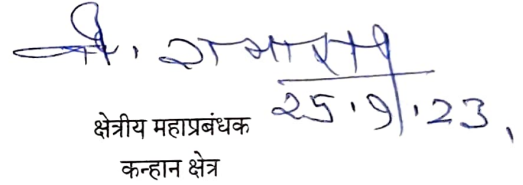 25.9.23
क्षेत्रीय महाप्रबंधक
कन्हान क्षेत्र